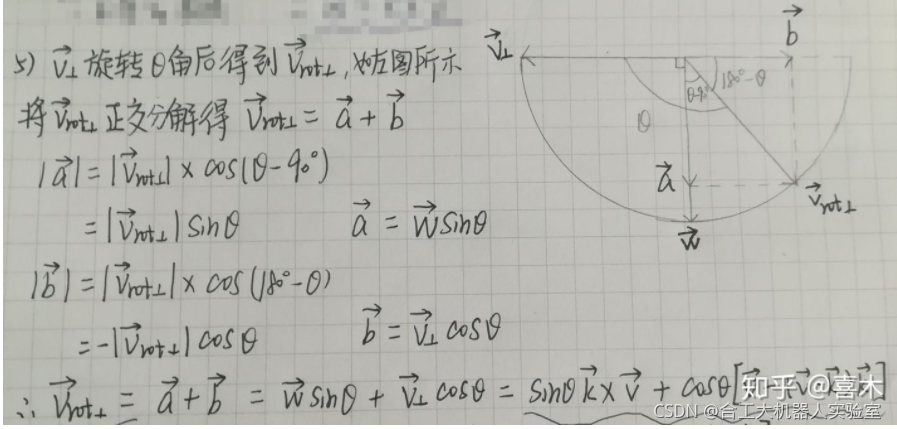 5) v⃗⊥旋转θ角后得到v⃗rot⊥,如左图所示
将v⃗rot⊥正交分解得 v⃗rot⊥ = a⃗ + b⃗
|a⃗| = |v⃗rot⊥| × cos(θ-90°)
= |v⃗rot⊥| sinθ a⃗ = w⃗sinθ
|b⃗| = |v⃗rot⊥| × cos(180°-θ)
= -|v⃗rot⊥| cosθ b⃗ = v⃗⊥ cosθ
∴ v⃗rot⊥ = a⃗ + b⃗ = w⃗sinθ + v⃗⊥cosθ = sinθ k⃗ × v⃗ + cosθ[
v⃗⊥
b⃗
θ-90°
180°-θ
θ
a⃗
v⃗rot⊥
w⃗
知乎 @喜木
CSDN @合工大机器人实验室